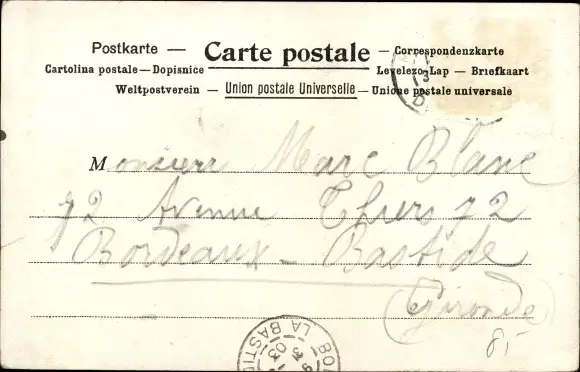 Postkarte — Carte postale — Correspondenzkarte
Cartolina postale — Dopisnice Levelezo-Lap — Briefkaart
Weltpostverein — Union postale Universelle — Unione postale universale
Monsieur Marc Blanc
72 Avenue Thiers 72
Bordeaux - Bastide
(Gironde)
LA BASTID
03